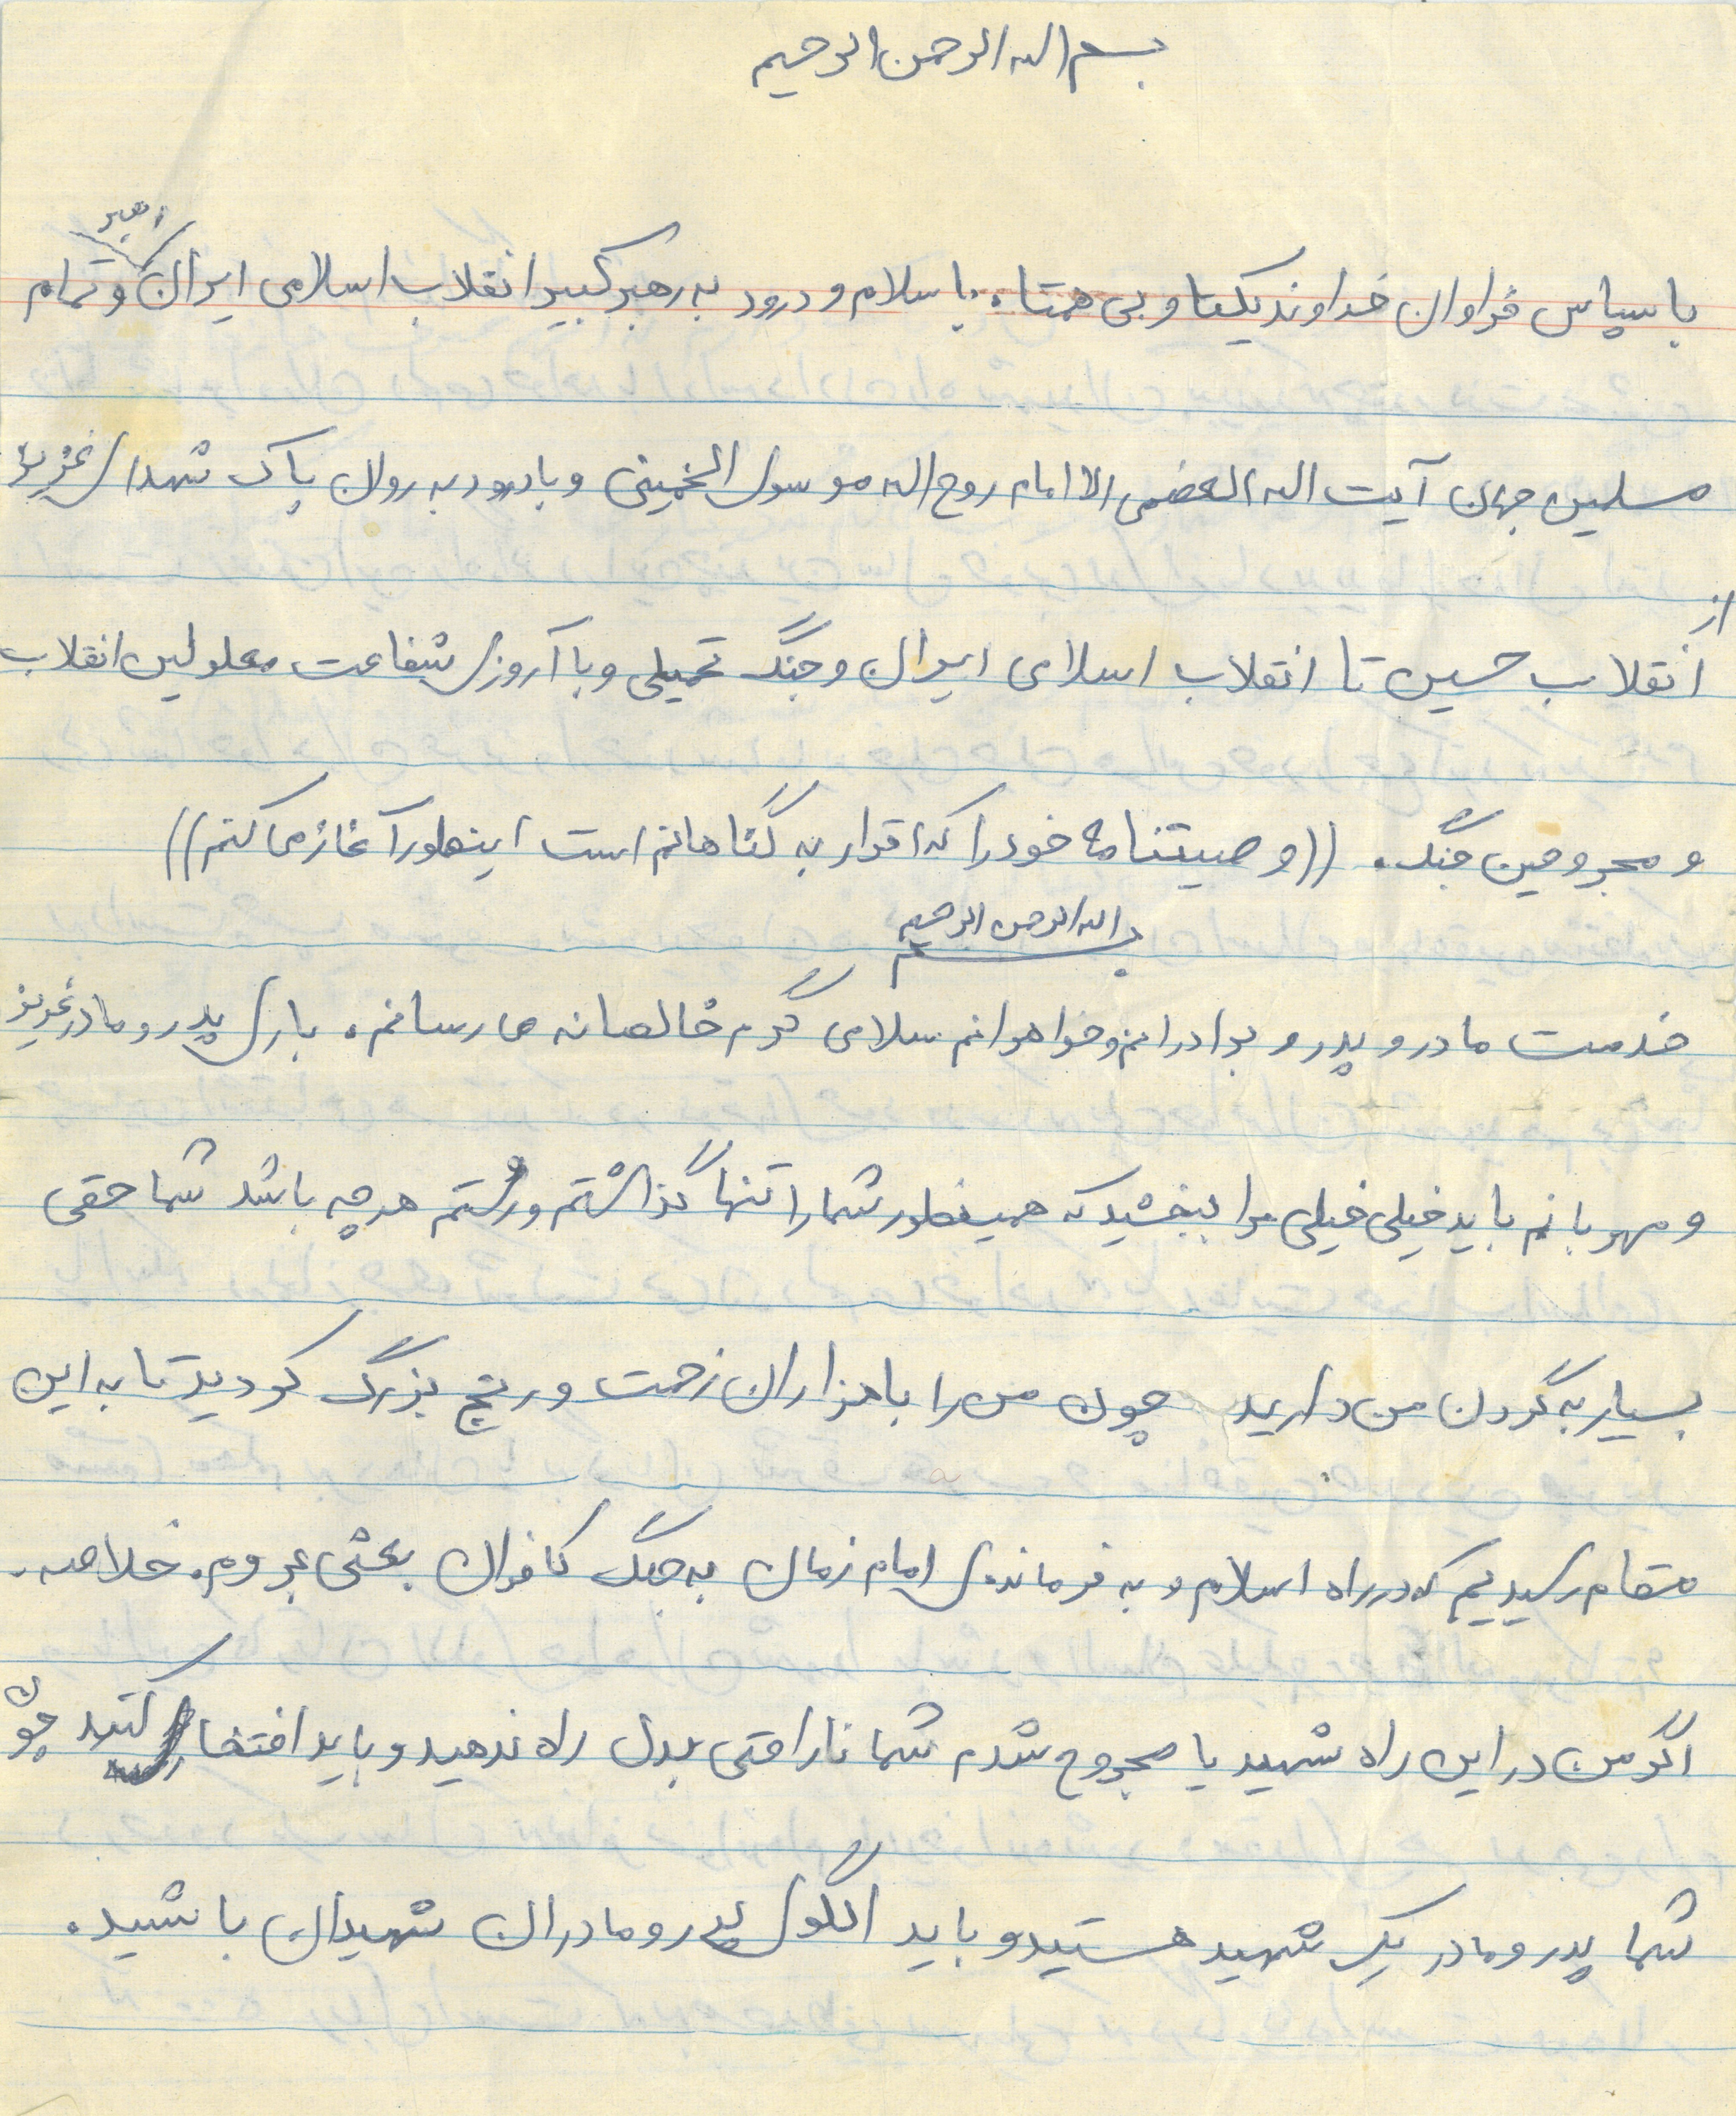 بسم اله الرحمن الرحیم
رهبر
با سپاس فراوان خداوند یکتا و بی همتا. با سلام و درود به رهبر کبیر انقلاب اسلامی ایران و تمام
مسلمین جهان آیت اله العضمی الا امام روح اله موسول الخمینی و با درود به روان پاک شهدای عزیز
از
انقلاب حسین تا انقلاب اسلامی ایران و جنگ تحمیلی و با آروزی شفاعت معلولین انقلاب
و مجروحین جنگ. ((وصیتنامه خود را که اقرار به گناهانم است اینطور آغاز می کنم))
بسم اله الرحمن الرحیم
خدمت مادر و پدر و برادرانم و خواهرانم سلامی گرم خالصانه می رسانم. باری پدر و مادر عزیز
و مهربانم باید خیلی خیلی مرا ببخشید که همینطور شما را تنها گذاشتم و رفتم هر چه باشد شما حقی
بسیار به گردن من دارید چون من را با هزاران زحمت و رنج بزرگ کردید تا به این
مقام رسیدیم که در راه اسلام و به فرماندهی امام زمان به جنگ کافران بعثی بروم. خلاصه.
اگر من در این راه شهید یا مجروح شدم شما ناراحتی بدل راه ندهید و باید افتخار کنید چون
شما پدر و مادر یک شهید هستید و باید الگوی پدر و مادران شهیدان باشید.